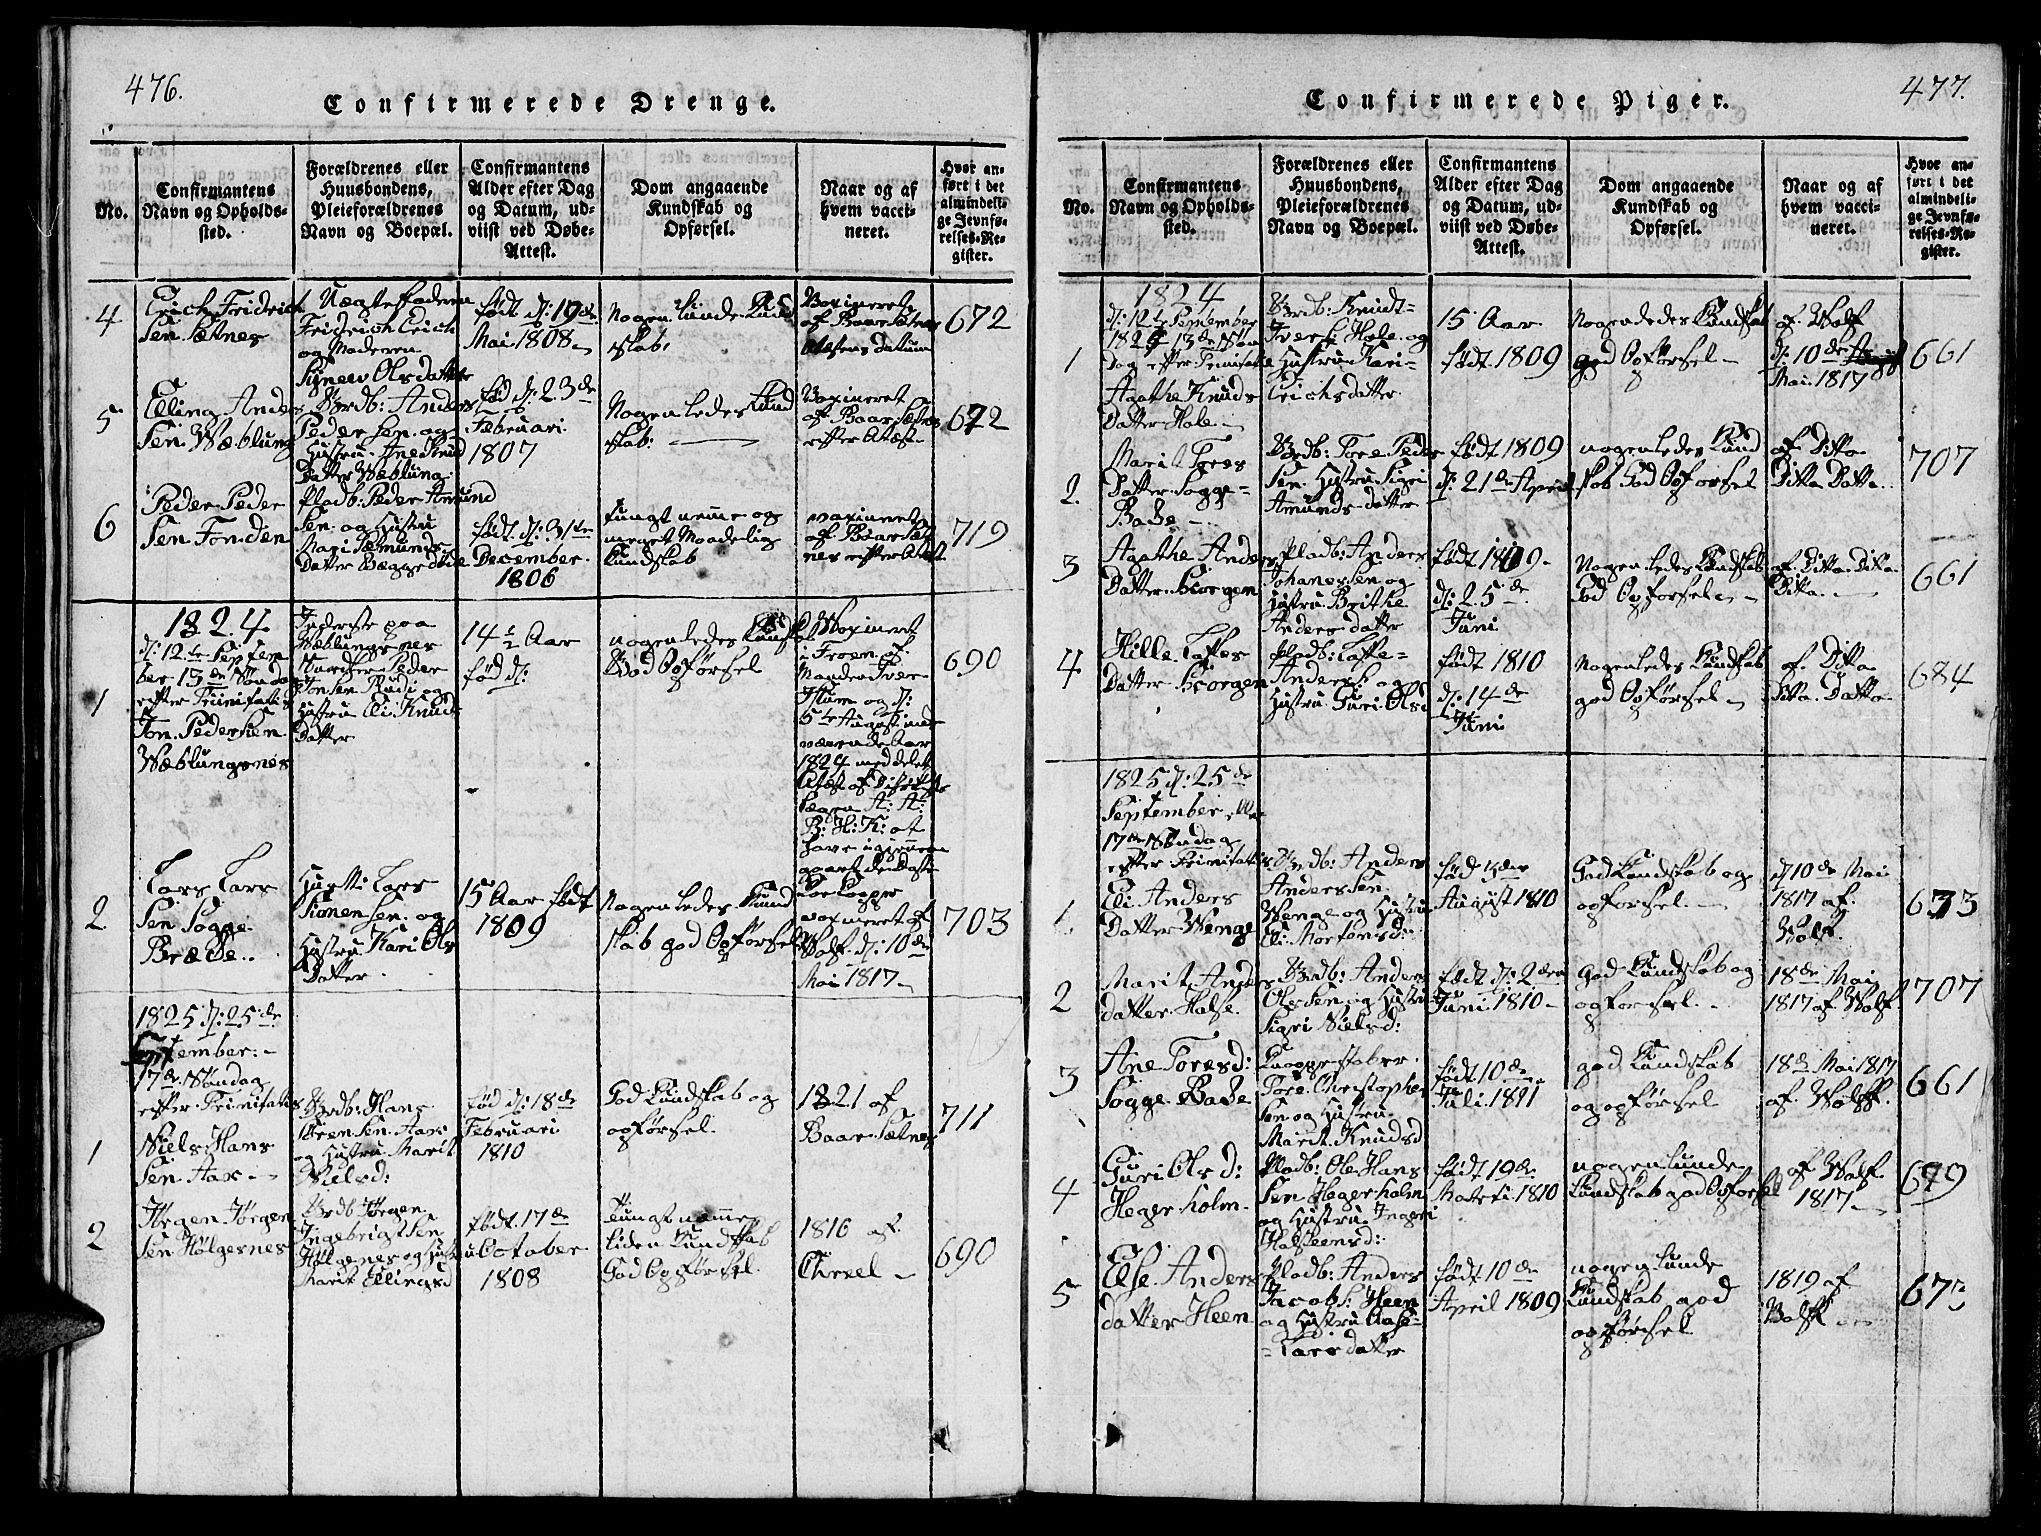 476.
Confirmerede Drenge.
No.
Confirmantens
Navn og Opholds-
sted.
Forældrenes eller
Huusbondens,
Pleieforældrenes
Navn og Boepæl.
Confirmantens
Alder efter Dag
og Datum, ud-
viist ved Døbe-
Attest.
Dom angaaende
Kundskab og
Opførsel.
Naar og af
hvem vacci-
neret.
Hvor an-
ført i det
almindeli-
ge Jevnfø-
relses-Re-
gister.
4
Erich Fridrich
Sen Sætnes
Uægte faderen
Fridrich Erich
og Moderen
Signew Olsdatter
født d: 19de
Mai 1808
Nogenlunde Kund
skab.
Vaxineret
af Baar Sætnes
Datum
672
5
Elling Anders
Sen Wæblung
Grdb: Anders
Peder Sen og
Hustru Ane Knud
Datter Wæblung
fød d: 23de
Februari
1807
Nogenledes Kund
skab:
Vaxineret
af Baar Sætnes
efter Atæst
672
6
Peder Peder
Sen Fonden
Pladb: Peder Amund
Sen og Hustru
Mari
Datter Begge døde
født d: 31te
December
1806
tungt nemme og
meget Maadelig
Kundskab
vaxineret
af Baar Sæt
nes efter Atæst
719
1824
d: 12te Septem
ber 13de Søndag
efter Trinitatis
1
Jon Peder Sen
Wæblungsnes
Inderste paa
Wæblungsnes
Peder
Jon Sen Rudi og
Hustru Eli Knuds
Datter
14½ Aar
fød d:
nogenledes Kundskab
God Opførsel
Waxineret
i Froen af
Iver
og d:
5te August
værende Aar
1824 meddelet
Atæst af Distrikts
Lægen A: A:
B: H: K: at
have igjennem
gaaet de
Koe Kopper
690
2
Lars Lars
Sen Sogge
Bræde
Lars
Simen Sen og
Hustru Kari Ols
Datter
15 Aar født
1809
Nogenledes Kund
skab god Opførsel
vaxineret af
Wolf d: 10de
Mai 1817
703
1825 d: 25de
September
17de Søndag
efter Trinitatis
1
Niels Hans
Sen Aar
Grdb: Hans
Steen Sen Aar
og Hustru Marit
Nielsd:
fød d: 18de
Februari
1810
God Kundskab og
opførsel.
1821 af
Baar Sætnes
711
2
Jørgen Jørgen
Sen Hølgesnes
Grdb Jørgen
Ingebrigt Sen
Hølgenes og Hustru
Marit Ellingsd
født 17de
October
1808
Tungt næmme
Liden Kundskab
God Opførsel.
1816 af
690
477.
Confirmerede Piger.
No.
Confirmantens
Navn og Opholds-
sted.
Forældrenes eller
Huusbondens,
Pleieforældrenes
Navn og Boepæl.
Confirmantens
Alder efter Dag
og Datum, ud-
viist ved Døbe-
Attest.
Dom angaaende
Kundskab og
Opførsel.
Naar og af
hvem vacci-
neret.
Hvor an-
ført i det
almindeli-
ge Jevnfø-
relses-Re-
gister.
1824
d: 12te September
1824 13de Søn
Dag efter Trinitatis
1
Agathe Knuds
Datter Hole
Grdb: Knudt
Iver S: Hole og
Hustru Kari
Erichsdatter
15 Aar
født 1809
Nogenledes Kundskab
god Opførsel
af Wolf
d: 10de
Mai 1817
661
2
Marit Tores
Datter Sogge
Bade
Grdb: Tore Peder
Sen Hustru Sigri
Amunds datter
født 1809
d: 21de April
nogenledes Kund
skab God Opførsel
af Ditto
Ditto Datto
707
3
Agathe Anders
Datter Horgen
Pladb: Anders
Johanes Sen og
Hustru Brithe
Anders datter
født 1809
d: 25de
Juni
Nogenledes Kundskab
God Opførsel
af Ditto Ditto
Ditto
661
4
Hille
Datter Horgen
Pladb:
Anders S: og
Hustru Guri Olsd
født 1810
d: 14de
Juni
Nogenledes Kundskab
god Opførsel
af Ditto
Ditto Datto
684
1825 d: 25de
September
17de Søndag
efter Trinitatis
1
Eli Anders
Datter Wenge
Grdb: Anders
Anders Sen
Wenge og Hustru
Eli Mortensd:
fød 5der
August 1810
God Kundskab og
opførsel.
d 10de Mai
1817 af
Wolf.
673
2
Marit Anders
datter Halse
Grdb: Anders
Ole Sen og Hustru
Sigri Nielsd:
født d: 2den
Juni 1810
God Kundskab og
opførsel.
18de Mai
1817 af Wolf
707
3
Ane Toresd:
Sogge Bade
Tore Christopher
Sen og Hustru
Marit Knudsd
født 10de
Juli 1811
god Kundskab
og opførsel
18de Mai 1817
af Wolff.
661
4
Guri Ols d:
Hegerholm
Pladb: Ole Hans
Sen Hegerholm
og Hustru Ingeri
Halsteensd:
født 19de
Martti 1810
nogenlunde
Kundskab god Opførsel
af Wolf
1817
679
5
Else Anders
datter Heen
Pladb: Anders
Jacobs: Heen
og Hustru Aase
Lars datter
født 10de
April 1809
nogenlunde
Kundskab god
opførsel
1819 af
Wolff
673